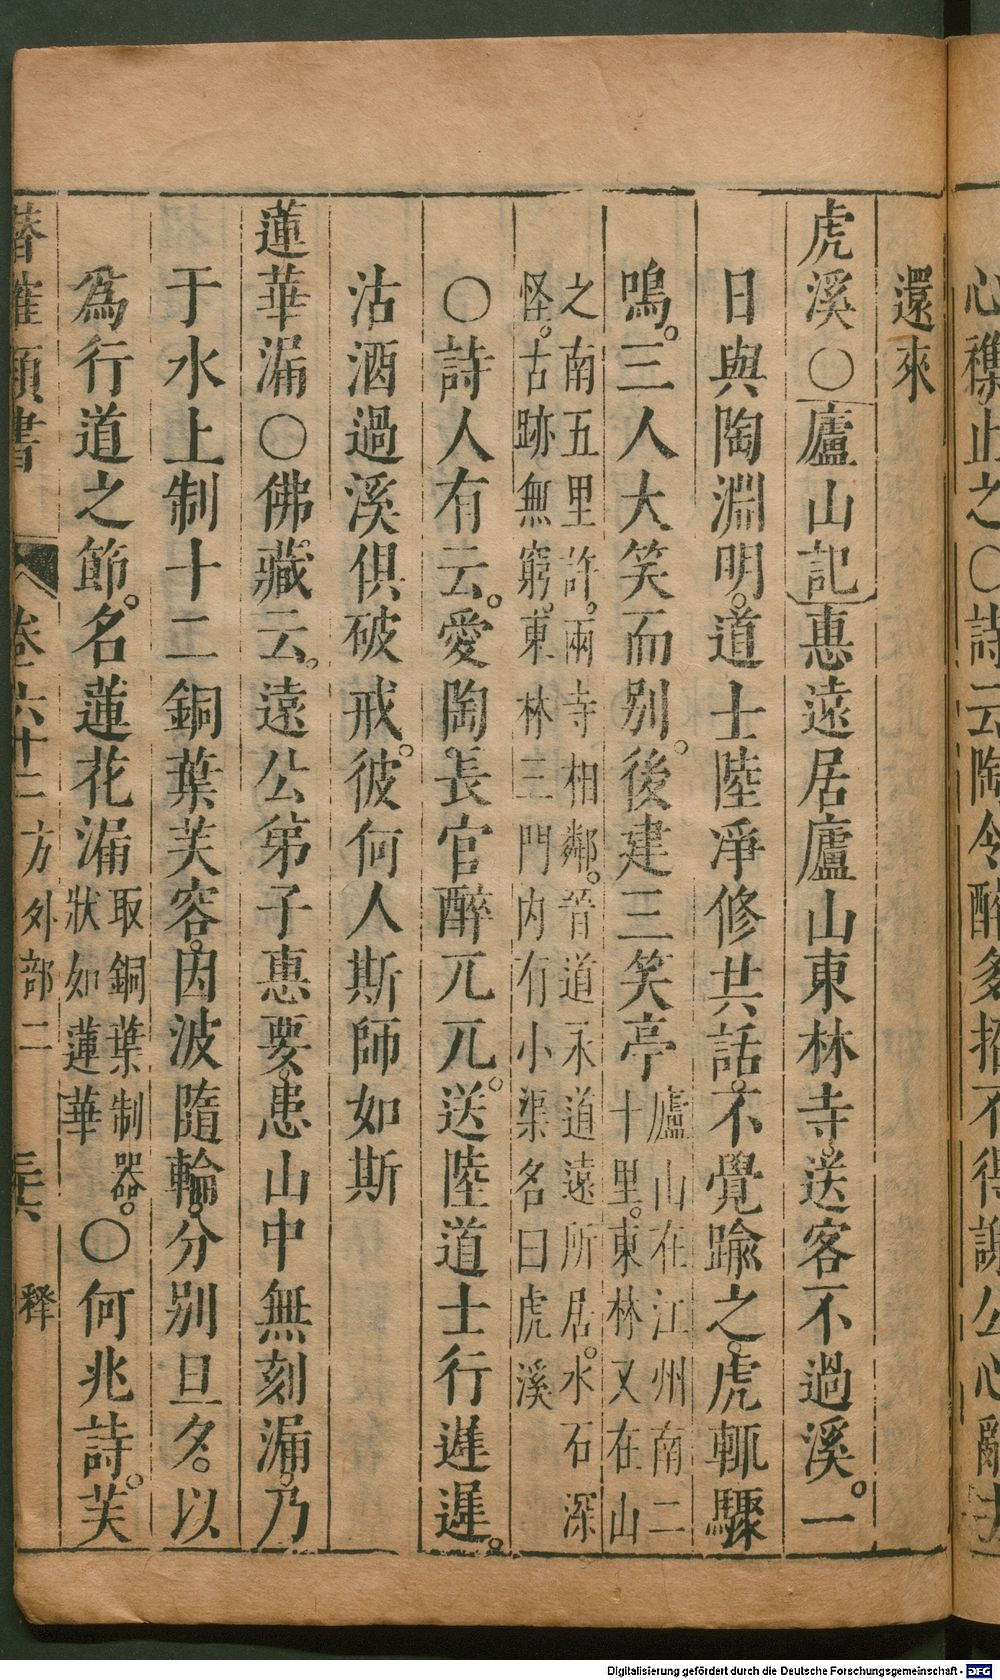 心機止之〇詩云陶令醉多招不得謝公心亂
還來
虎溪〇廬山記惠遠居廬山東林寺。送客不過溪。一
日與陶淵明。道士陸凈修共話。不覺踰之。虎輒驟
鳴。三人大笑而別。後建三笑亭
廬山在江州南二
十里。東林又在山
之南五里許。兩寺相鄰。晉道永道遠所居。水石深
怪。古跡無窮。東林三門内有小渠名曰虎溪
〇詩人有云。愛陶長官醉兀兀。送陸道士行遲遲。
沽酒過溪俱破戒。彼何人斯師如斯
蓮華漏〇佛藏云。遠公第子惠要。患山中無刻漏。乃
于水上制十二銅葉芙容。因波隨輪。分別旦夕。以
為行道之節。名蓮花漏
取銅葉制器。
狀如蓮華
〇何兆詩。芙
潛確類書 卷六十二 方外部二 三六 釋
Digitalisierung gefördert durch die Deutsche Forschungsgemeinschaft - DFG